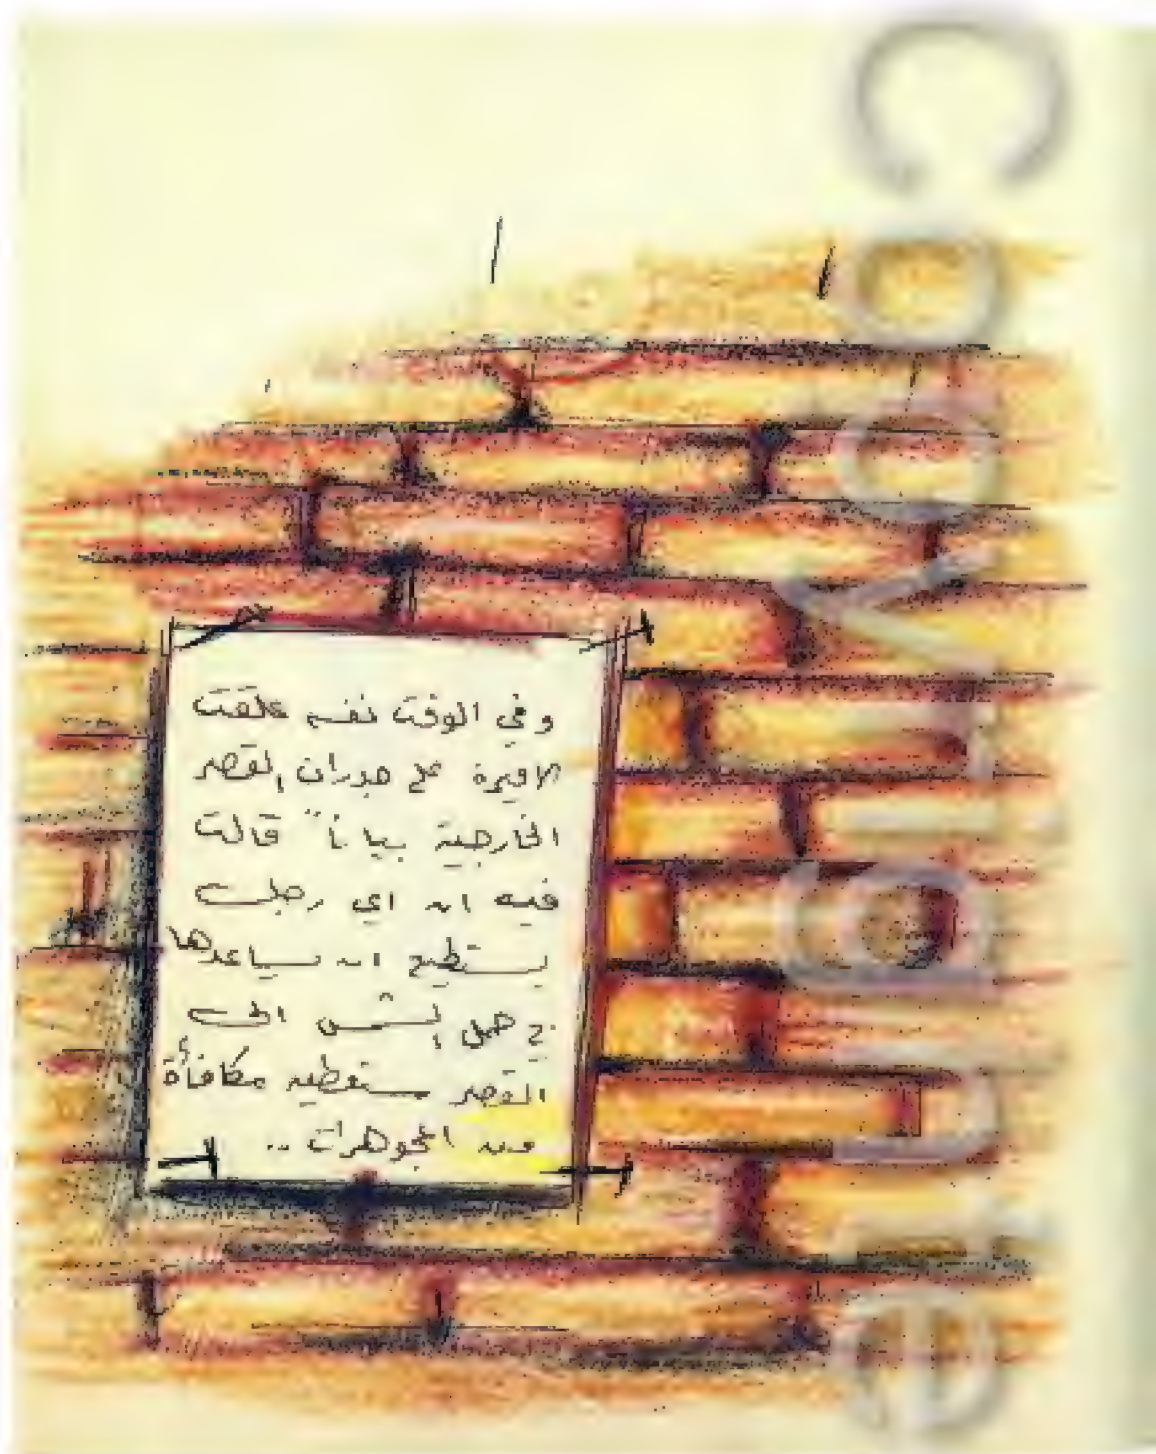 وفي الوقت نفسه علقت
الاميرة على جدران القصر
الخارجية بياناً قالت
فيه ان اي رجل
يستطيع ان يساعدها
في حمل الشمس الى
القصر ستعطيه مكافأة
من المجوهرات ..